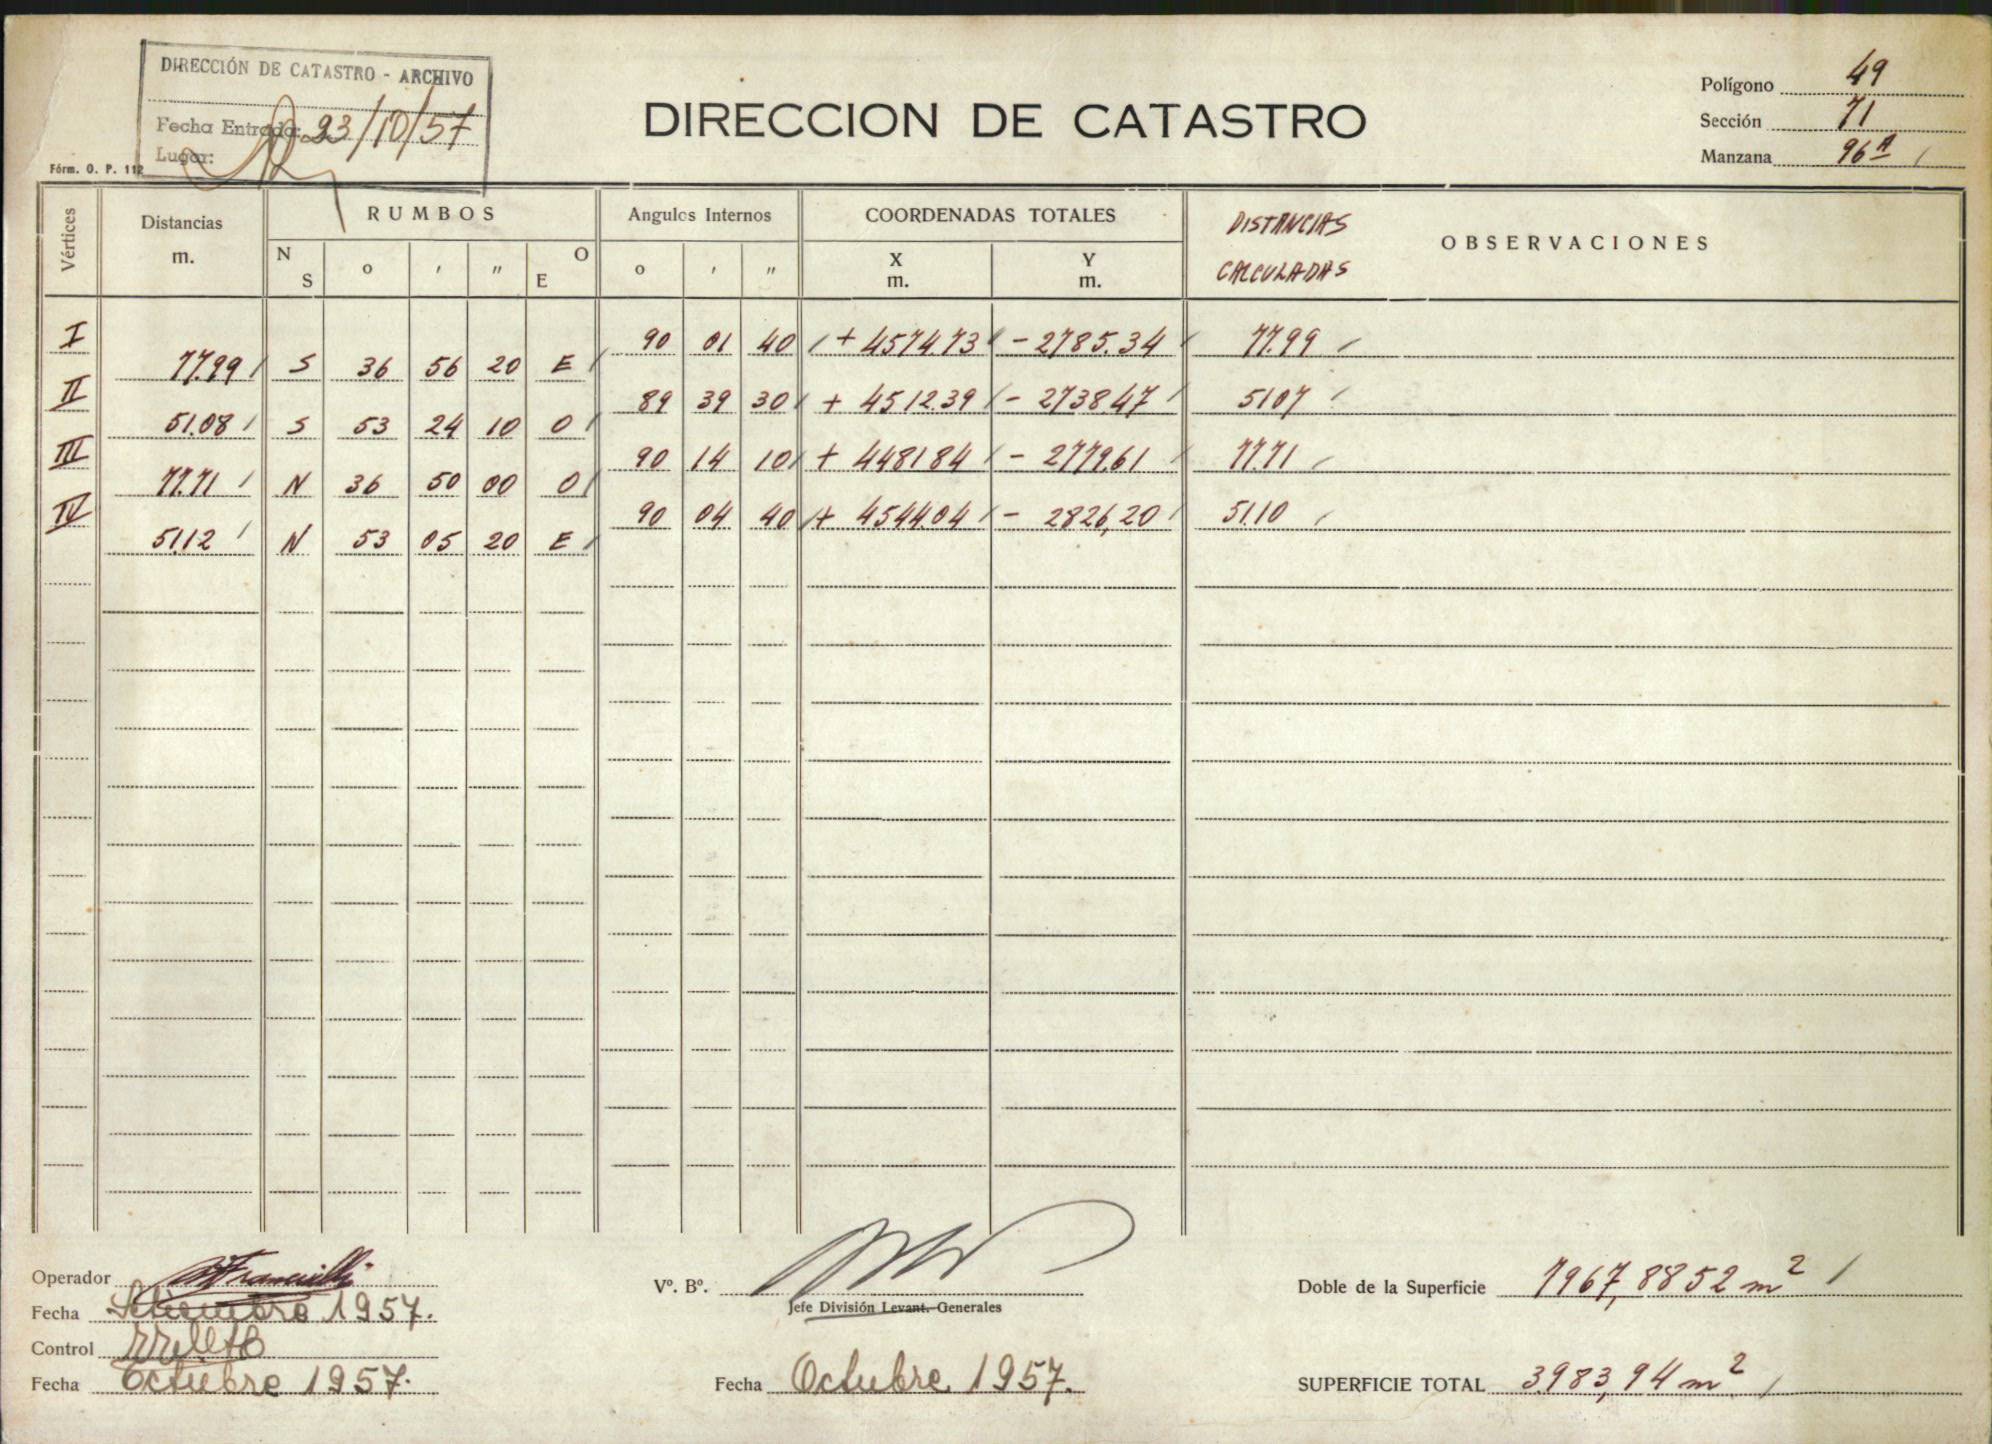 DIRECCIÓN DE CATASTRO - ARCHIVO
Fecha Entrada: 23/10/57
Lugar:
Fórm. O. P. 112
DIRECCION DE CATASTRO
Polígono 49
Sección 71
Manzana 96A
Vértices Distancias m. RUMBOS Angulos Internos COORDENADAS TOTALES DISTANCIAS CALCULADAS OBSERVACIONES
N S o ' " O E o ' " X m. Y m.
I 90 01 40 + 4574.73 - 2785.34 77.99
77.99 S 36 56 20 E
II 89 39 30 + 4512.39 - 2738.47 51.07
51.08 S 53 24 10 O
III 90 14 10 + 4481.84 - 2779.61 77.71
77.71 N 36 50 00 O
IV 90 04 40 + 4544.04 - 2826,20 51.10
51.12 N 53 05 20 E
Operador
Fecha Setiembre 1957.
Control
Fecha Octubre 1957.
Vº. Bº.
Jefe División Levant. Generales
Fecha Octubre 1957.
Doble de la Superficie 7967,8852 m2
SUPERFICIE TOTAL 3983,94 m2